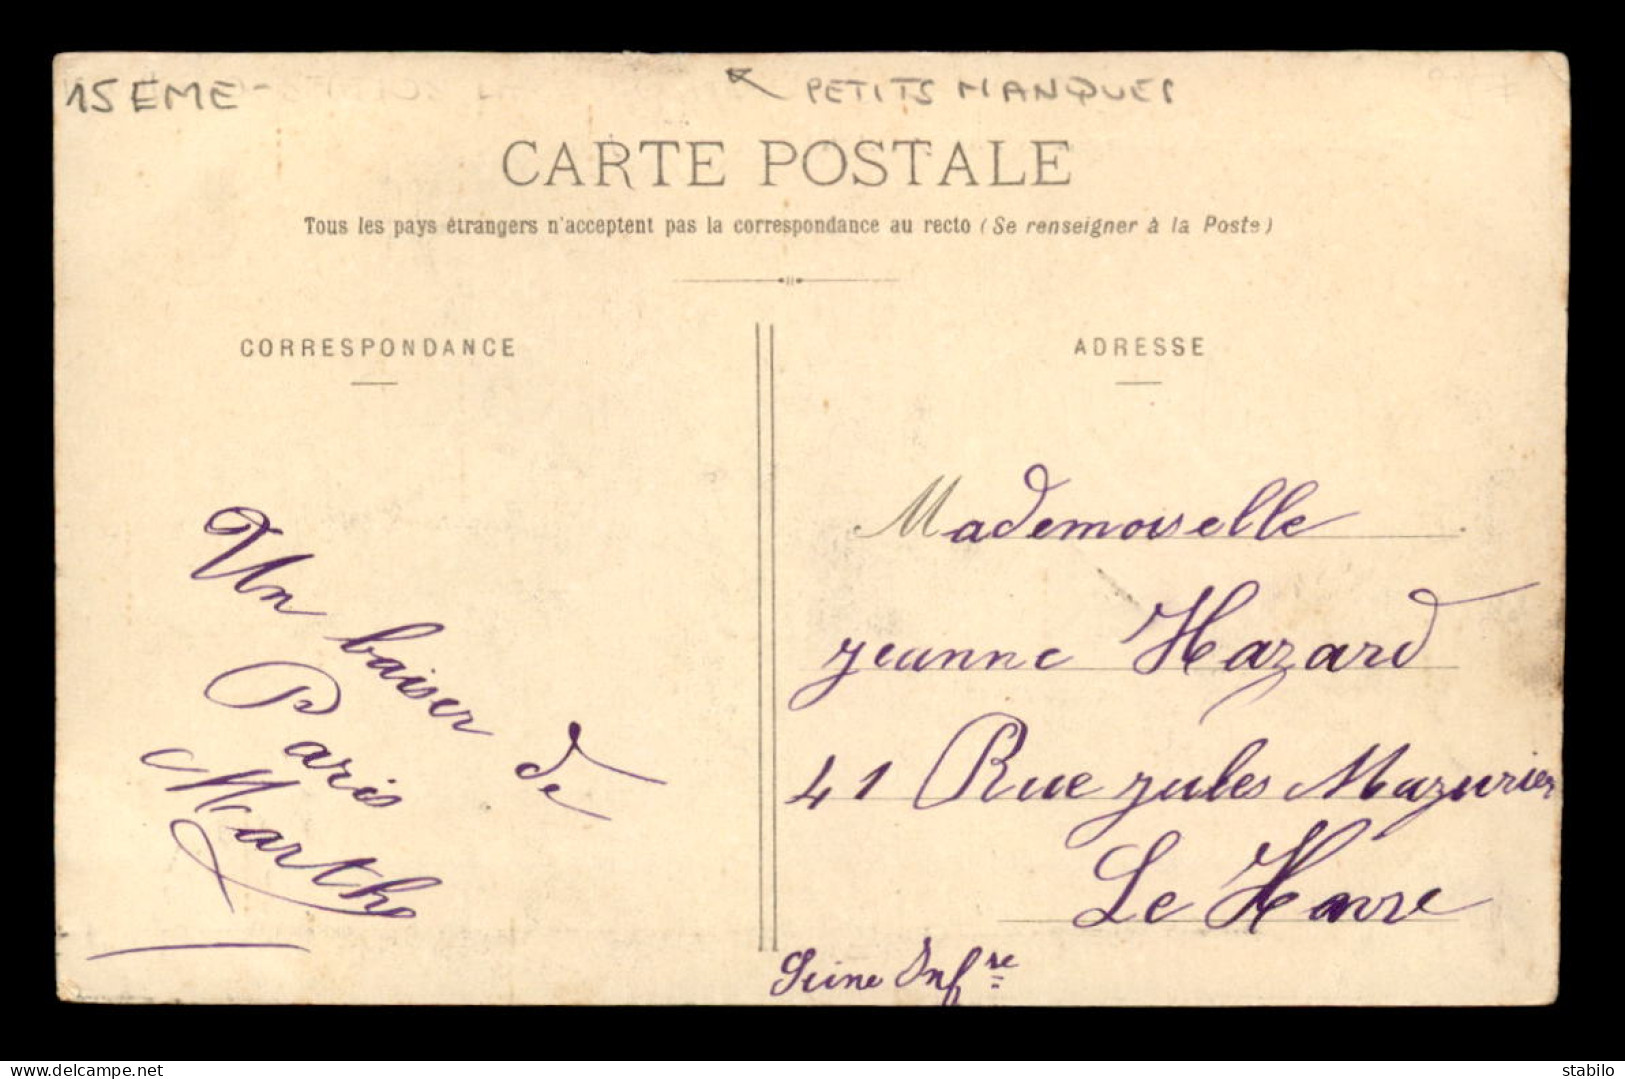 15 EME -
PETITS MANQUES
CARTE POSTALE
Tous les pays étrangers n'acceptent pas la correspondance au recto (Se renseigner à la Poste)
CORRESPONDANCE
ADRESSE
Un baiser de
Paris
Marthe
Mademoiselle
jeanne Hazard
41 Rue jules Mazurier
Le Havre
Seine Infre
www.delcampe.net
stabilo